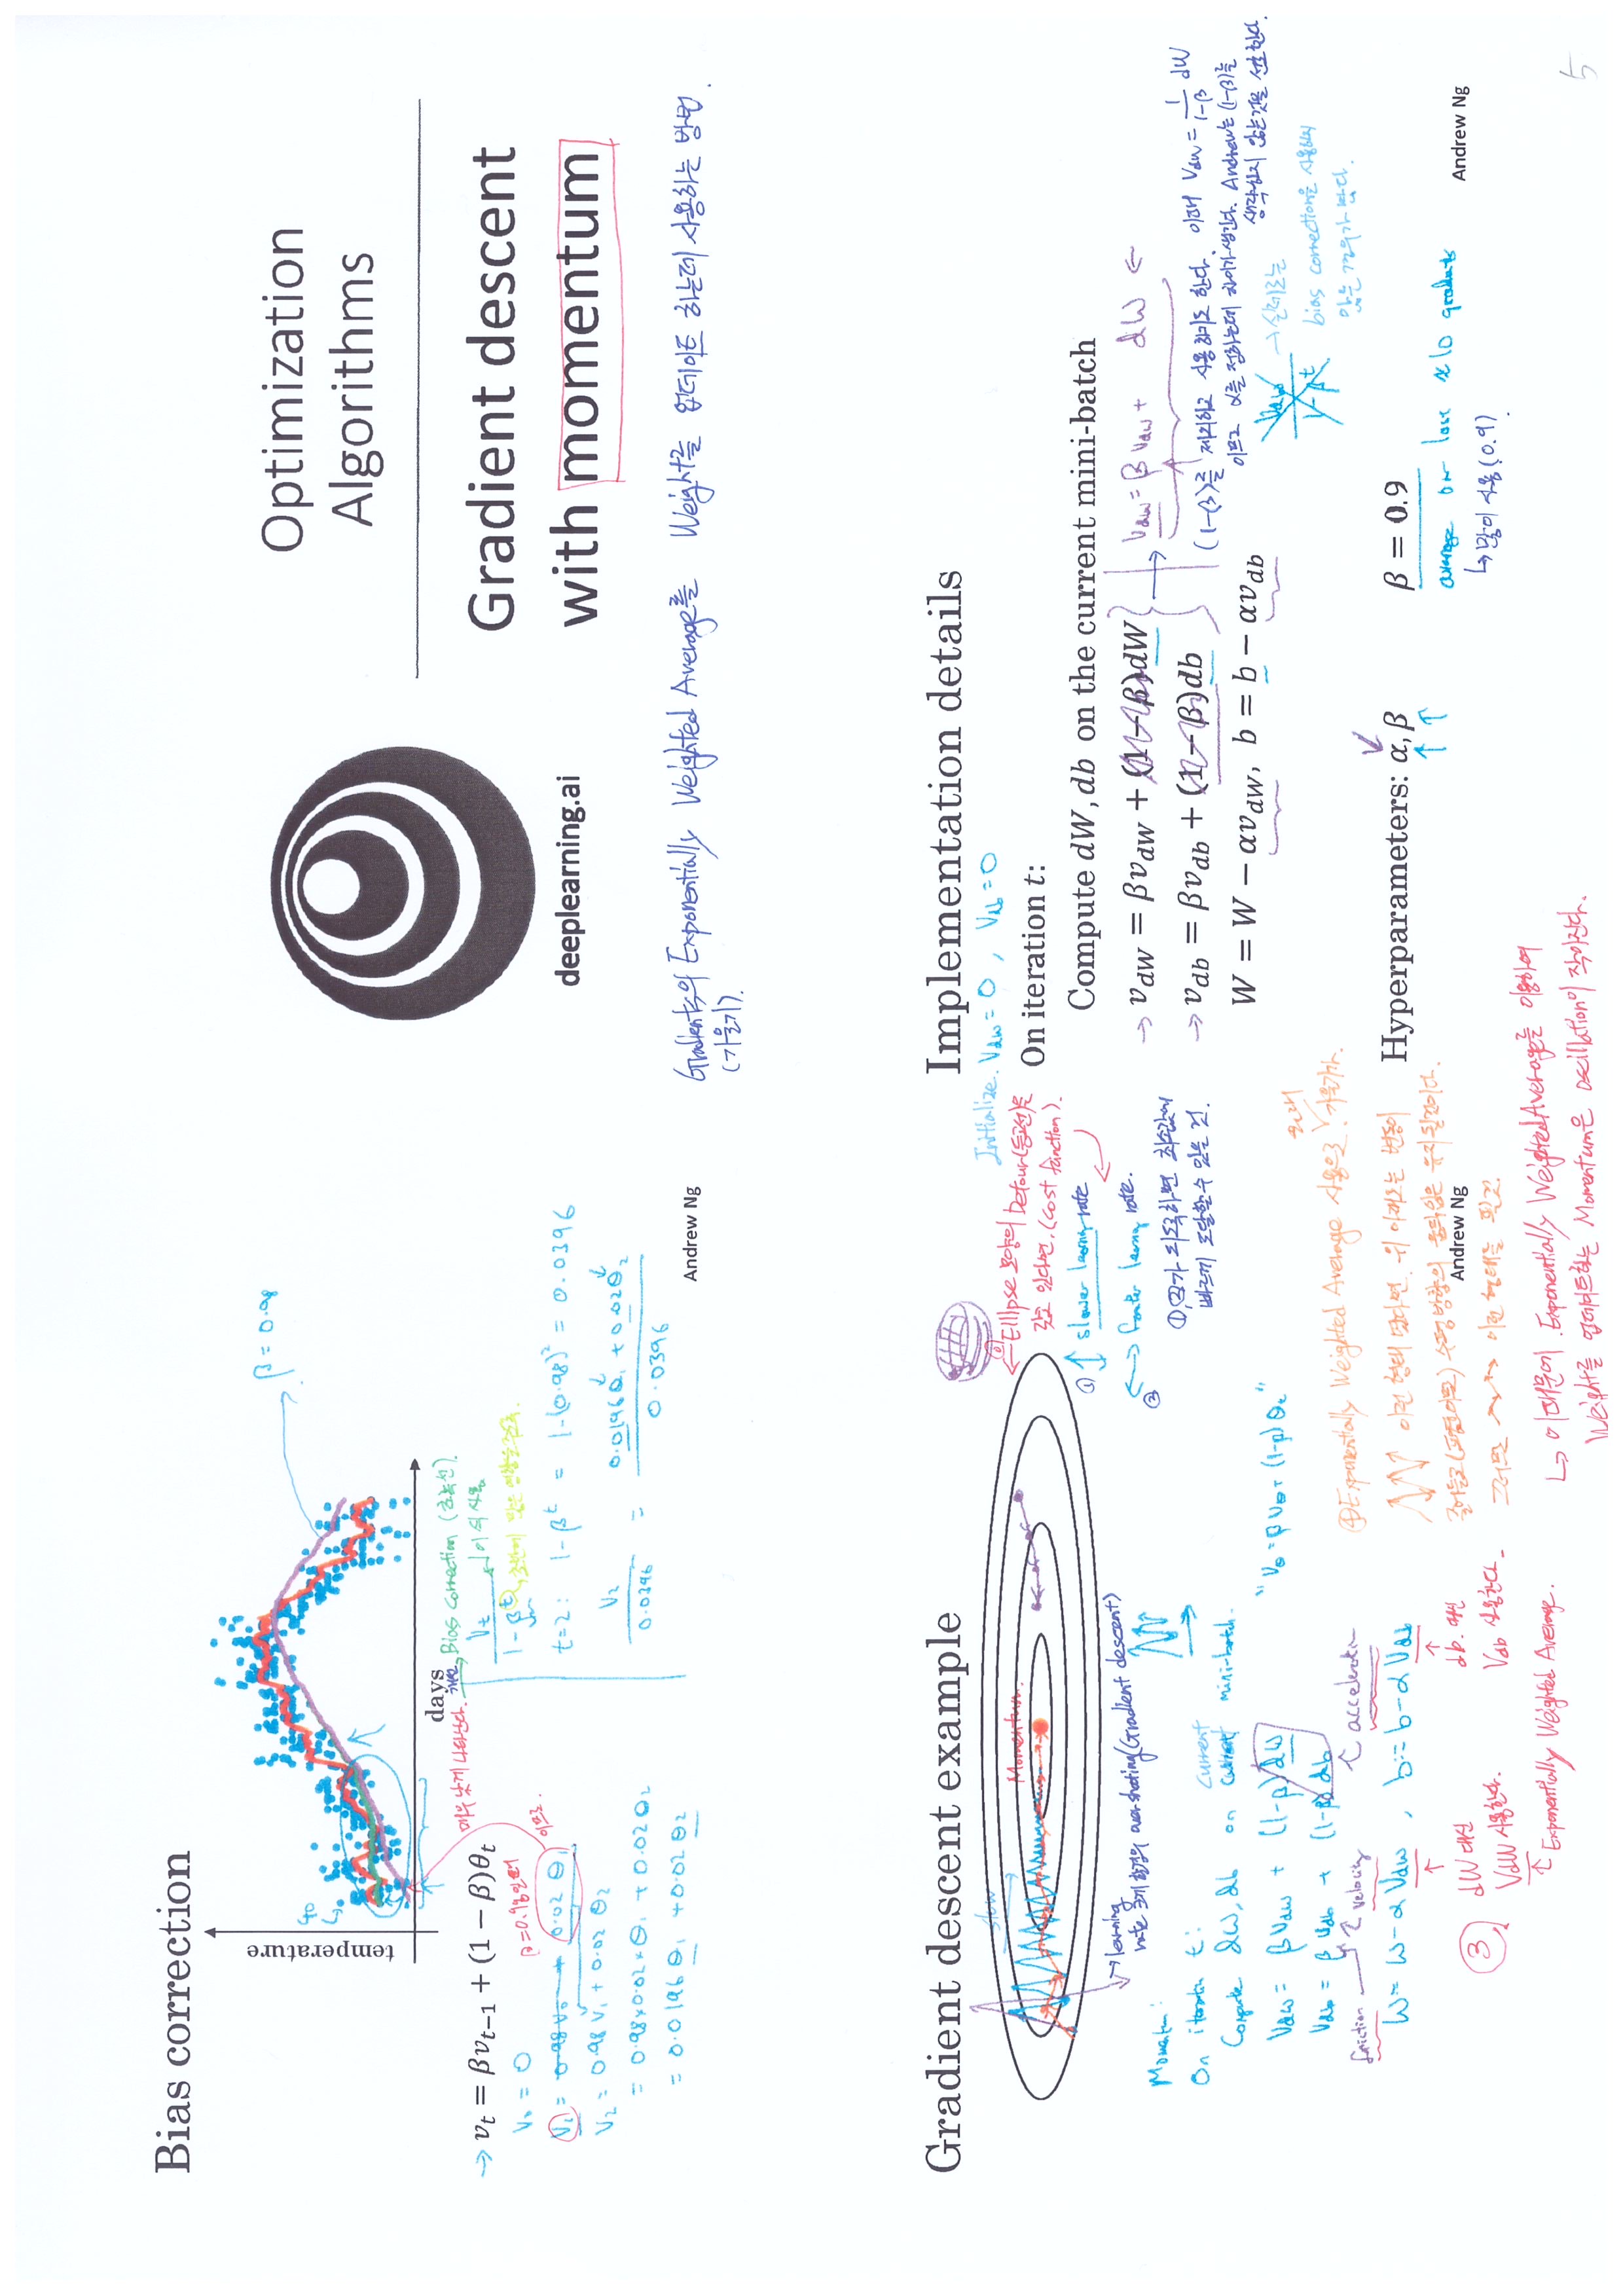 Bias correction
temperature
days
40
β = 0.98
매우 낮게 나타난다.
개선
Bias correction (초록선).
→ vₜ = βvₜ₋₁ + (1 − β)θₜ
V₀ = 0
β=0.98일때
이므로.
V₁ = 0.98 V₀ + 0.02 θ₁
V₂ = 0.98 V₁ + 0.02 θ₂
= 0.98×0.02×θ₁ + 0.02θ₂
= 0.0196 θ₁ + 0.02 θ₂
Vₜ / (1 − βᵗ)
이 식 사용
초반에 많은 영향을 주도록.
t=2: 1−βᵗ = 1−(0.98)² = 0.0396
V₂ / 0.0396 = (0.0196θ₁ + 0.02θ₂) / 0.0396
Andrew Ng
deeplearning.ai
Optimization
Algorithms
Gradient descent
with momentum
Gradients의 Exponentially Weighted Average를 Weight를 업데이트 하는데 사용하는 방법.
(기울기).
Gradient descent example
slow
Momentum.
→ learning
rate 크게 할경우 over shooting(Gradient descent)
⓪
Ellipse 모양의 Detour(등고선)을
갖고 있다면. (cost function).
① ↕ slower learning rate
② ↔ faster learning rate.
①,②가 되도록하면 최솟값에
빠르게 도달할수 있을 것.
Momentum:
On iteration t:
Current
Compute dW, db on current mini-batch.
Vdw = β Vdw + (1-β) dw
Vdb = β Vdb + (1-β) db
"Vθ = β Vθ + (1-β) θₜ"
friction
velocity
acceleration
W = W − α Vdw , b := b − α Vdb
③
dW 대신
VdW 사용한다.
↑ Exponentially Weighted Average.
db 대신
Vdb 사용한다.
원래
④ Exponentially Weighted Average 사용으로 기울기가.
이런 형태 였다면. 위 아래로는 변동이
줄어들고 (평균이므로) 수평 방향의 움직임은 유지될것이다.
그러면 이런 형태를 띌것.
Andrew Ng
↳ 이때문에 Exponentially Weighted Average를 이용하여
Weight를 업데이트하는 Momentum은 oscillation이 작아진다.
Implementation details
Initialize. Vdw = 0 , Vdb = 0
On iteration t:
Compute dW, db on the current mini-batch
→ v_dW = βv_dW + (1 − β)dW
→ v_db = βv_db + (1 − β)db
W = W − αv_dW, b = b − αv_db
Vdw = β Vdw + dW ←
(1-β)를 제외하고 사용하기도 한다. 이때 Vdw = 1/(1-β) dW
이므로 α를 정하는데 차이가 생긴다. Andrew는 (1-β)를
생각하지 않는것을 선호한다.
Vdw / (1-βᵗ)
→ 실제로는
bias correction을 사용하지
않는 경우가 많다.
Hyperparameters: α, β
β = 0.9
average on last ≈ 10 gradients
↳ 많이 사용 (0.9)
Andrew Ng
5